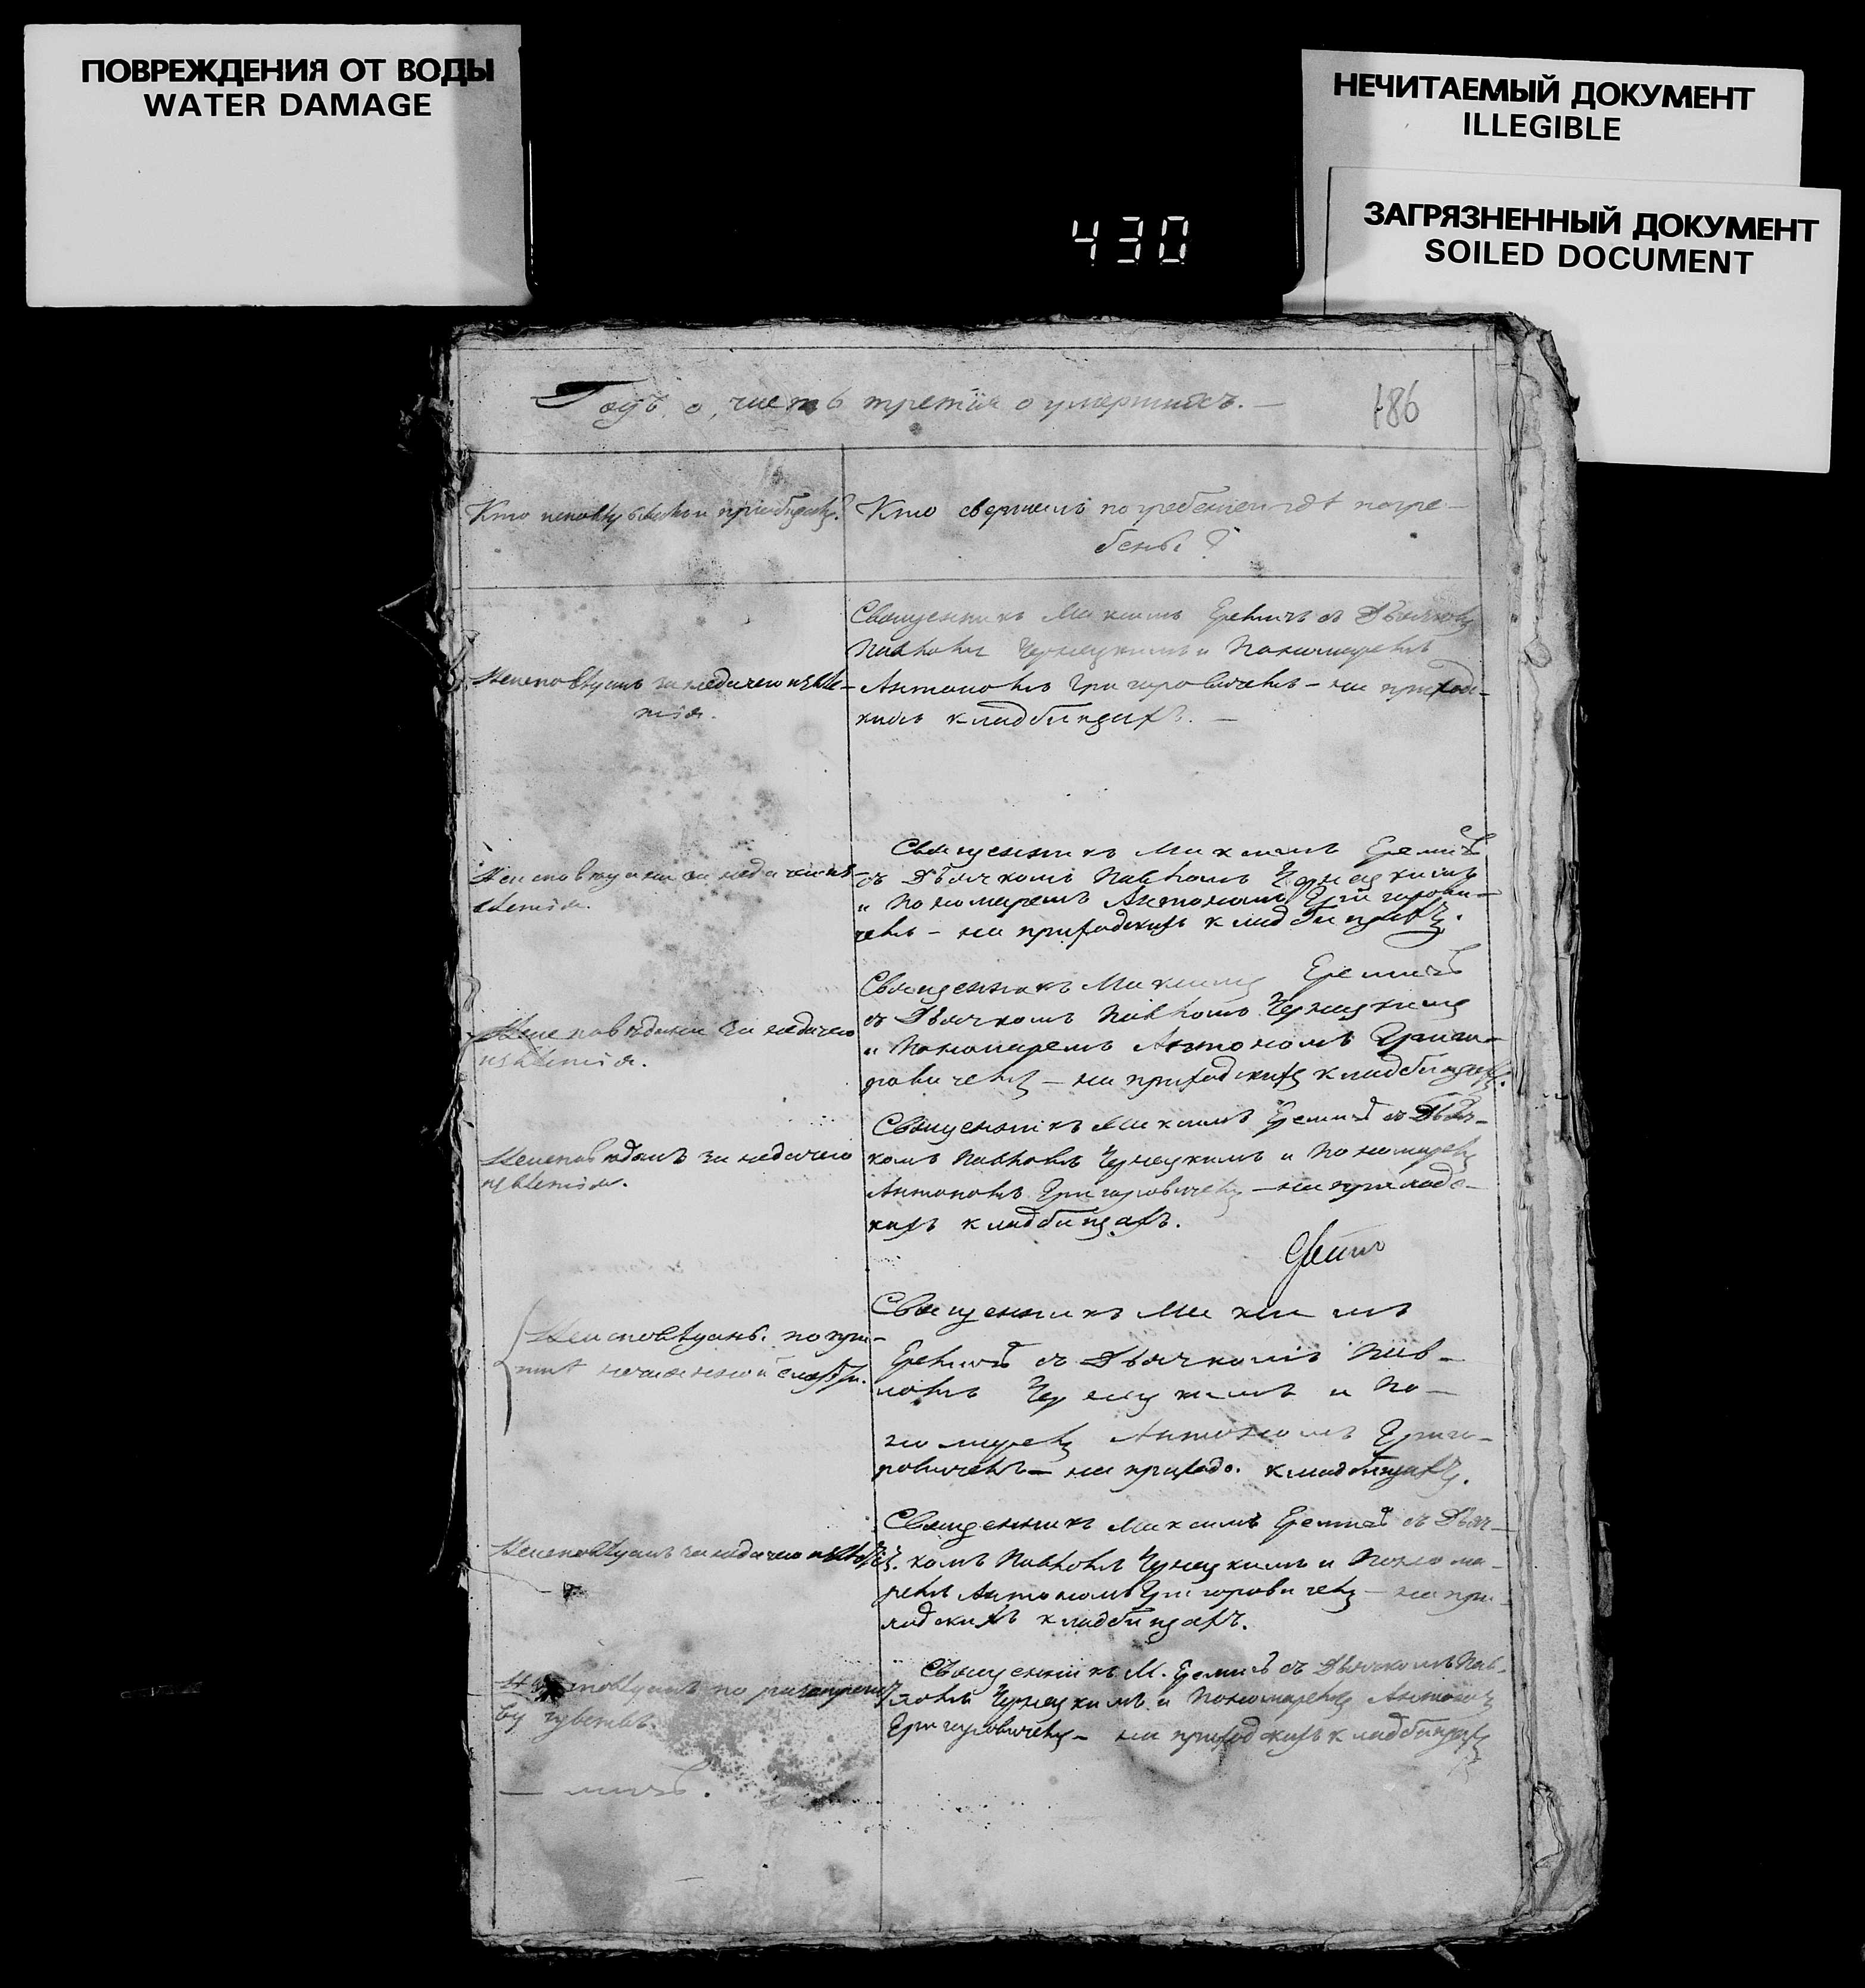 ПОВРЕЖДЕНИЯ ОТ ВОДЫ
WATER DAMAGE
НЕЧИТАЕМЫЙ ДОКУМЕНТ
ILLEGIBLE
ЗАГРЯЗНЕННЫЙ ДОКУМЕНТ
SOILED DOCUMENT
430
Годъ, о, часть третія о умершихъ. —
186
Кто исповѣдывалъ и пріобщалъ?
Кто совершилъ погребеніе и гдѣ погре-
бены?
Неисповѣданъ за
тія.
Священникъ Максимъ Еремичъ съ Дьячкомъ
Павломъ Чернецкимъ и Пономаремъ
Антономъ Григоровичемъ – на приход-
кихъ кладбищахъ. —
Неисповѣдана за
Священникъ Максимъ Еремич
съ Дьячкомъ Павломъ Чернецкимъ
и Пономаремъ Антономъ Григорови-
чемъ – на приходскихъ кладбищахъ.
Неисповѣдана за
Священникъ Максимъ Еремич
съ Дьячкомъ Павломъ Чернецкимъ
и Пономаремъ Антономъ Григо-
ровичемъ – на приходскихъ кладбищахъ.
Неисповѣданъ за
Священникъ Максимъ Еремич съ Дьяч-
комъ Павломъ Чернецкимъ и Пономаремъ
Антономъ Григоровичемъ – на приходс-
кихъ кладбищахъ.
Неисповѣданъ. по при-
чинѣ нечаянной смерти.
Священникъ Максимъ
Еремич съ Дьячкомъ Пав-
ломъ Чернецкимъ и По-
номаремъ Антономъ Григо-
ровичемъ – на приходс. кладбищахъ.
Неисповѣданъ за
Священникъ Максимъ Еремич съ Дьяч-
комъ Павломъ Чернецкимъ и Понома-
ремъ Антономъ Григоровичемъ – на при-
ходскихъ кладбищахъ.
по
чувствъ.
Священникъ М. Еремич съ Дьячкомъ Пав-
ломъ Чернецкимъ и Пономаремъ Антономъ
Григоровичемъ – на приходскихъ кладбищахъ